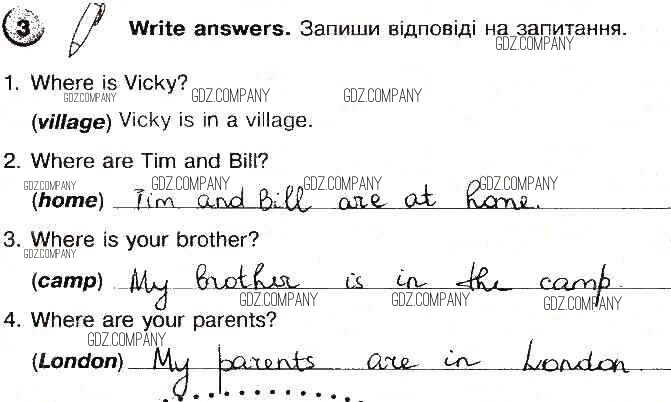 3 Write answers. Запиши відповіді на запитання.
GDZ.COMPANY
1. Where is Vicky?
GDZ.COMPANY GDZ.COMPANY GDZ.COMPANY
(village) Vicky is in a village.
2. Where are Tim and Bill?
GDZ.COMPANY GDZ.COMPANY GDZ.COMPANY GDZ.COMPANY
(home) Tim and Bill are at home.
3. Where is your brother?
GDZ.COMPANY
(camp) My brother is in the camp.
GDZ.COMPANY GDZ.COMPANY GDZ.COMPANY
4. Where are your parents?
GDZ.COMPANY
(London) My parents are in London